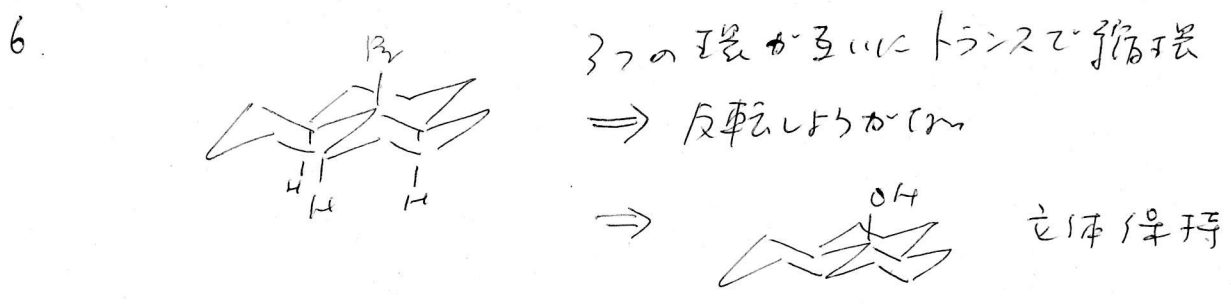 6.
Br
3つの環が互いにトランスで縮環
H
H
H
⇒ 反転しようがない
⇒
OH
立体保持